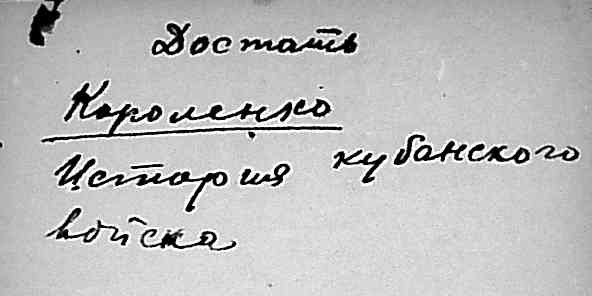 Достать
Короленко
История кубанского
войска